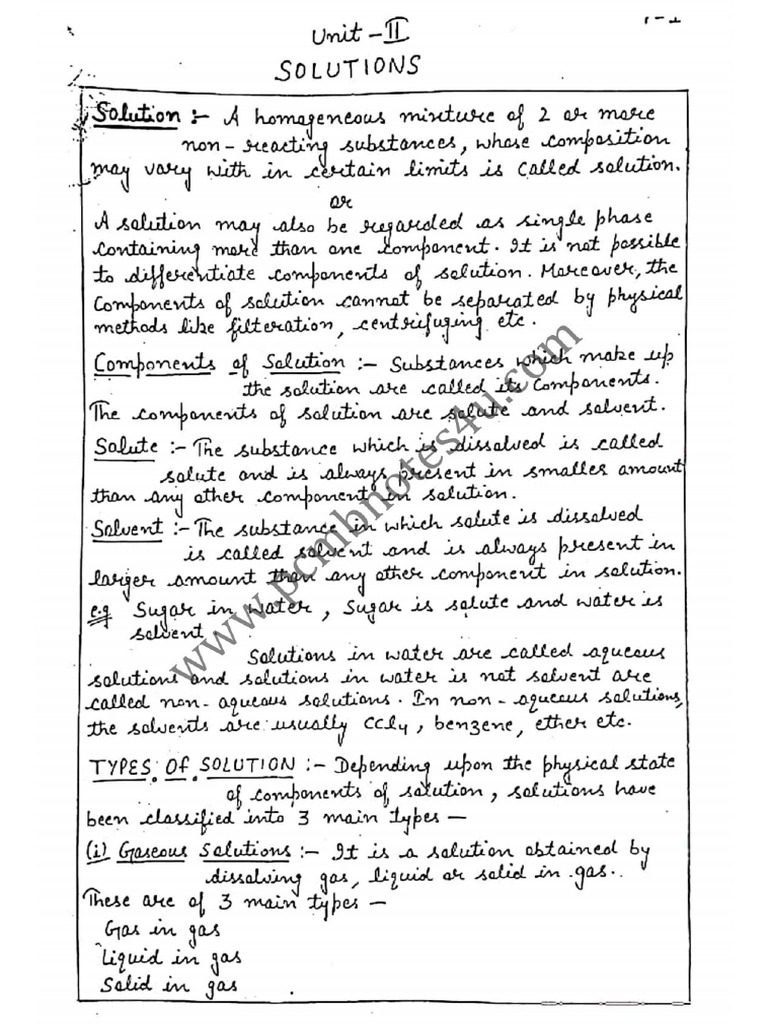 Unit - II
P-1
SOLUTIONS
Solution :- A homogeneous mixture of 2 or more
non-reacting substances, whose composition
may vary with in certain limits is called solution.
or
A solution may also be regarded as single phase
containing more than one component. It is not possible
to differentiate components of solution. Moreover, the
components of solution cannot be separated by physical
methods like filteration, centrifuging etc.
Components of Solution :- Substances which make up
the solution are called its components.
The components of solution are solute and solvent.
Solute :- The substance which is dissolved is called
solute and is always present in smaller amount
than any other component in solution.
Solvent :- The substance in which solute is dissolved
is called solvent and is always present in
larger amount than any other component in solution.
e.g Sugar in water, Sugar is solute and water is
solvent
Solutions in water are called aqueous
solutions and solutions in water is not solvent are
called non-aqueous solutions. In non-aqueous solutions,
the solvents are usually CCl4, benzene, ether etc.
TYPES OF SOLUTION :- Depending upon the physical state
of components of solution, solutions have
been classified into 3 main types —
(i) Gaseous Solutions :- It is a solution obtained by
dissolving gas, liquid or solid in gas.
These are of 3 main types —
Gas in gas
Liquid in gas
Solid in gas
www.pcmbnotes4u.com